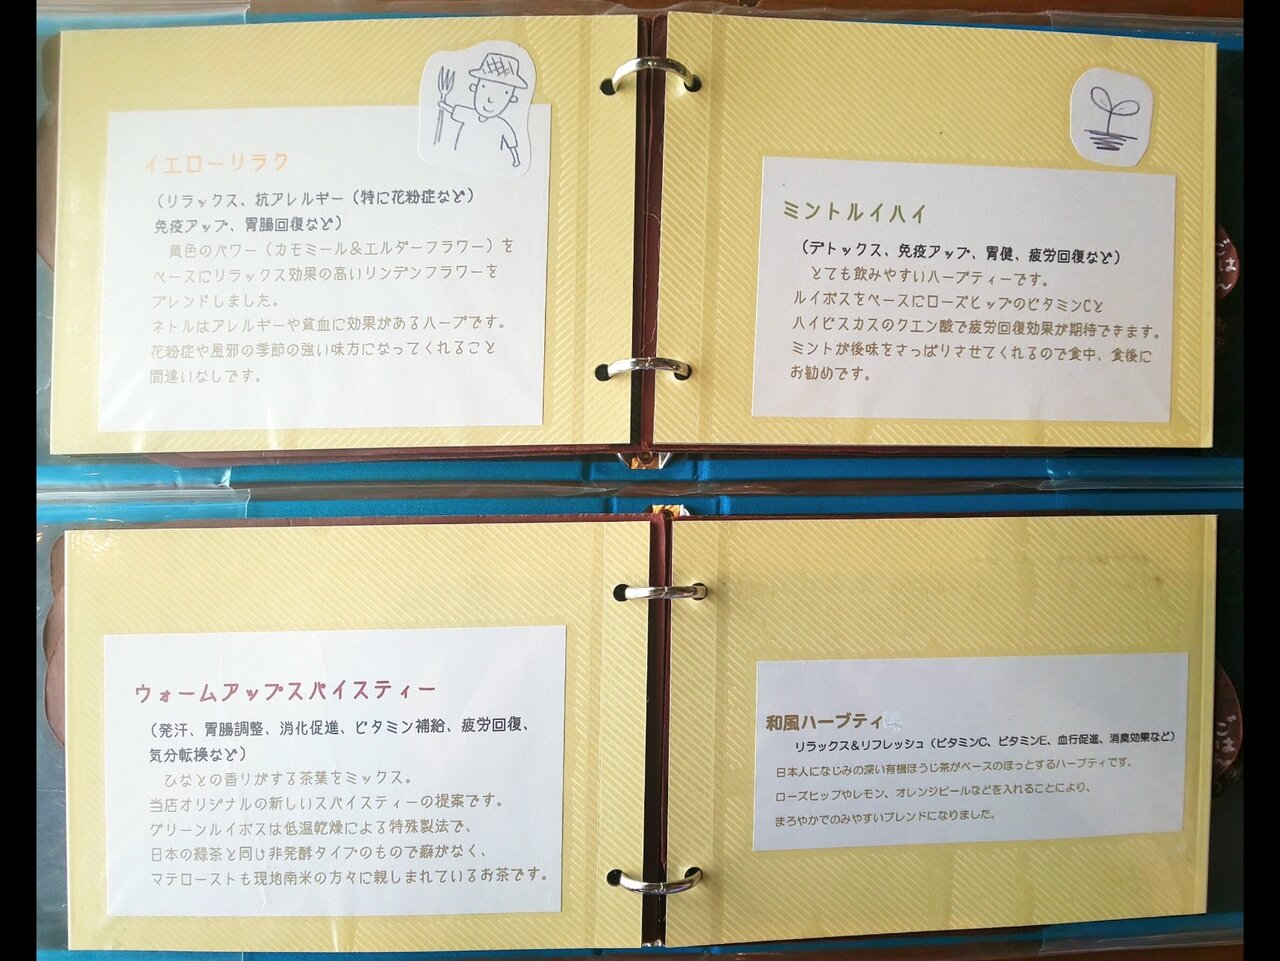 イエローリラク
（リラックス、抗アレルギー（特に花粉症など）
免疫アップ、胃腸回復など）
黄色のパワー（カモミール＆エルダーフラワー）を
ベースにリラックス効果の高いリンデンフラワーを
ブレンドしました。
ネトルはアレルギーや貧血に効果があるハーブです。
花粉症や風邪の季節の強い味方になってくれること
間違いなしです。
ミントルイハイ
（デトックス、免疫アップ、胃健、疲労回復など）
とても飲みやすいハーブティーです。
ルイボスをベースにローズヒップのビタミンCと
ハイビスカスのクエン酸で疲労回復効果が期待できます。
ミントが後味をさっぱりさせてくれるので食中、食後に
お勧めです。
ごは
ウォームアップスパイスティー
（発汗、胃腸調整、消化促進、ビタミン補給、疲労回復、
気分転換など）
ひなとの香りがする茶葉をミックス。
当店オリジナルの新しいスパイスティーの提案です。
グリーンルイボスは低温乾燥による特殊製法で、
日本の緑茶と同じ非発酵タイプのもので癖がなく、
マテローストも現地南米の方々に親しまれているお茶です。
和風ハーブティ
リラックス＆リフレッシュ（ビタミンC、ビタミンE、血行促進、消臭効果など）
日本人になじみの深い有機ほうじ茶がベースのほっとするハーブティです。
ローズヒップやレモン、オレンジピールなどを入れることにより、
まろやかでのみやすいブレンドになりました。
ごは